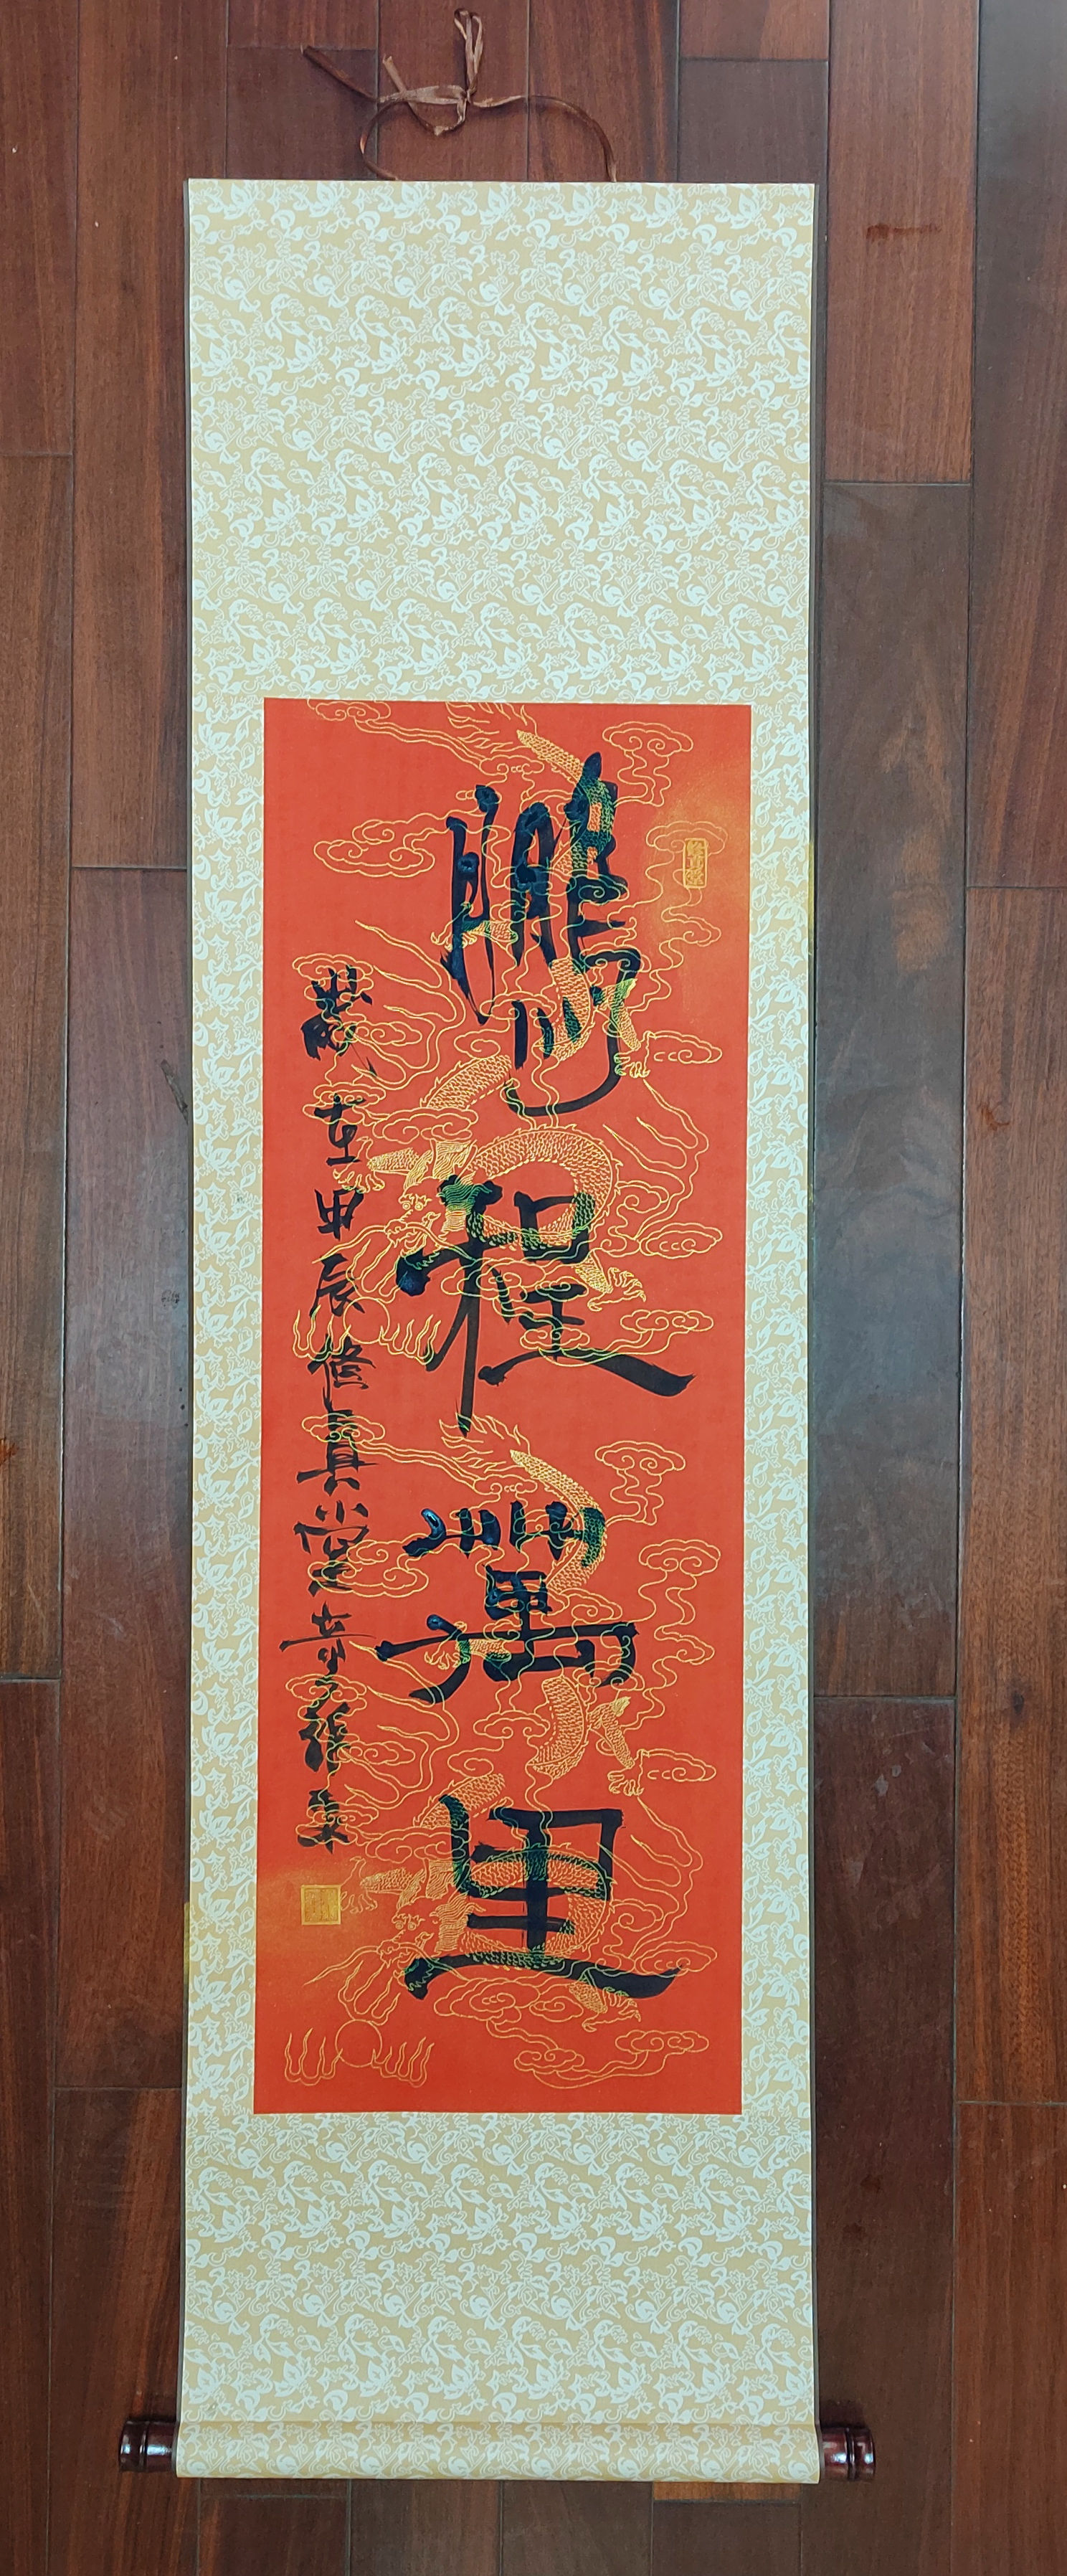 鵬程萬里
歲在甲辰修真堂奇